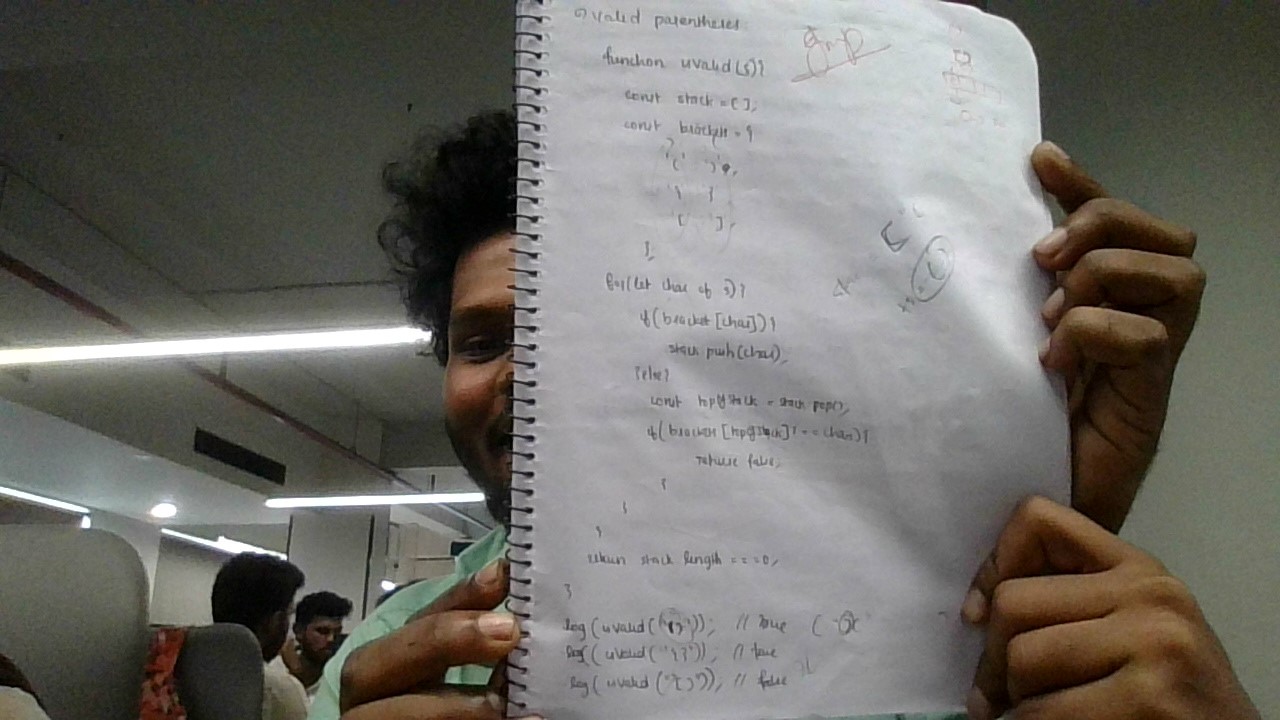 valid parentheses
function isvalid(s){
const stack = [ ];
const bracket = {
'(' ')',
'{' '}'
'[' ']',
};
for(let char of s){
if(bracket[char]){
stack push(char);
}else{
const topofstack = stack pop();
if(bracket[topofstack] !== char){
return false;
}
}
}
return stack length === 0;
}
log(isvalid("()")); // true
log(isvalid("{}")); // true
log(isvalid("[}")); // false